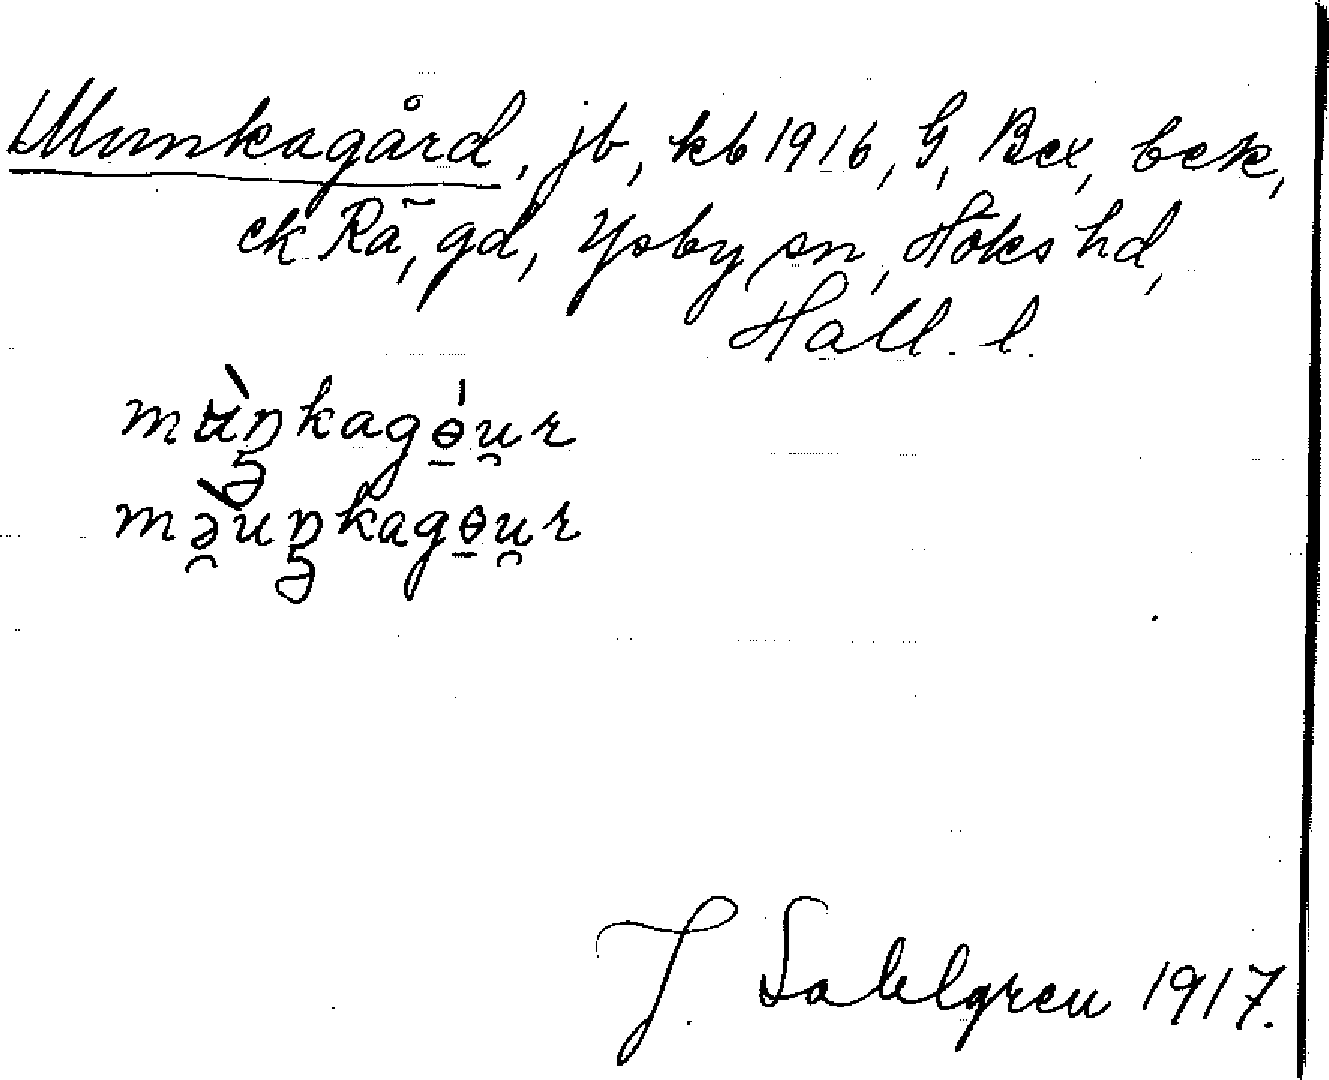 Munkagård, jb, kb 1916, G, Bex, bek,
ck Rā, gd, Ysby sn, Höks hd,
Hall. l.
mʉ̀ŋkagɵ̠́u̯r
mə̯̀uŋkagɵ̠u̯r
J. Sahlgren 1917.